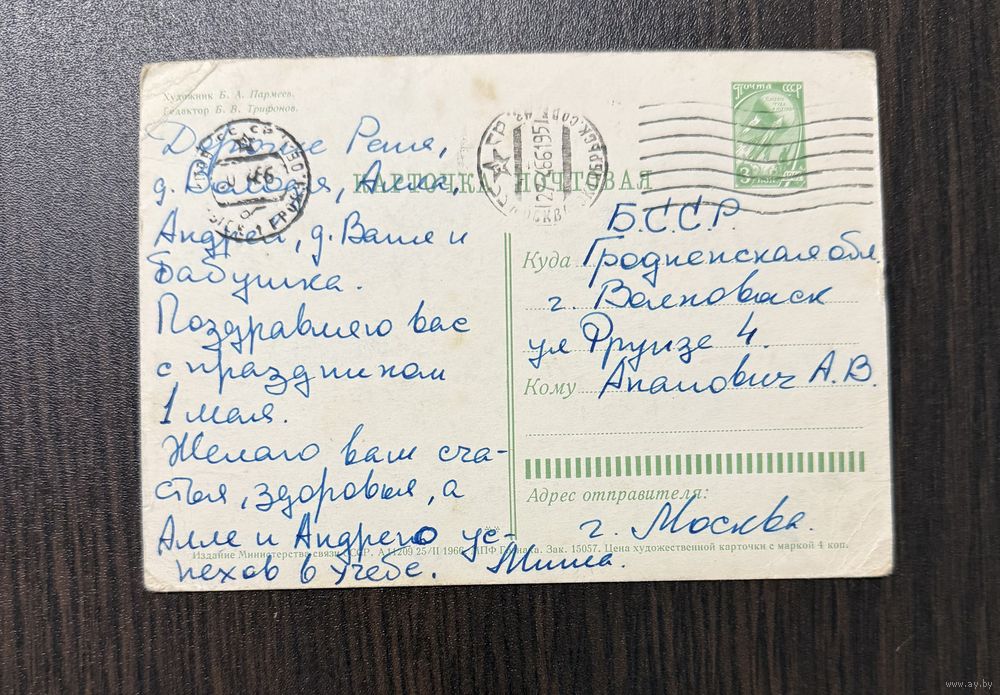 Художник Б. А. Пармеев.
Редактор Б. В. Трифонов.
ПОЧТА СССР
КАРТОЧКА ПОЧТОВАЯ
Дорогие Реня,
д. Володя, Алла,
Андрей, д. Ваня и
Бабушка.
Поздравляю вас
с праздником
1 мая.
Желаю вам сча-
стья, здоровья, а
Алле и Андрею ус-
пехов в учебе. Миша.
Б.С.С.Р.
Куда Гродненская обл
г. Волковыск
ул Фрунзе 4.
Кому Апанович А.В.
Адрес отправителя:
г. Москва.
Издание Министерства связи СССР. 25/II-1966 Зак. 15057. Цена художественной карточки с маркой 4 коп.
www.ay.by